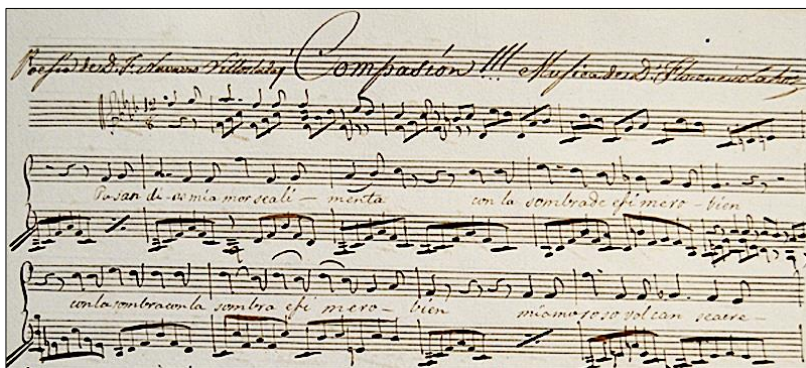 Poesía de D. F. Navarro Villoslada Compasión!!! Musica de D. Florencio Lahoz
Pasan di-as mi amor se ali-menta con la sombra de efimero-bien
con la sombra con la sombra efi mero-bien mi amoroso volcan se acre-